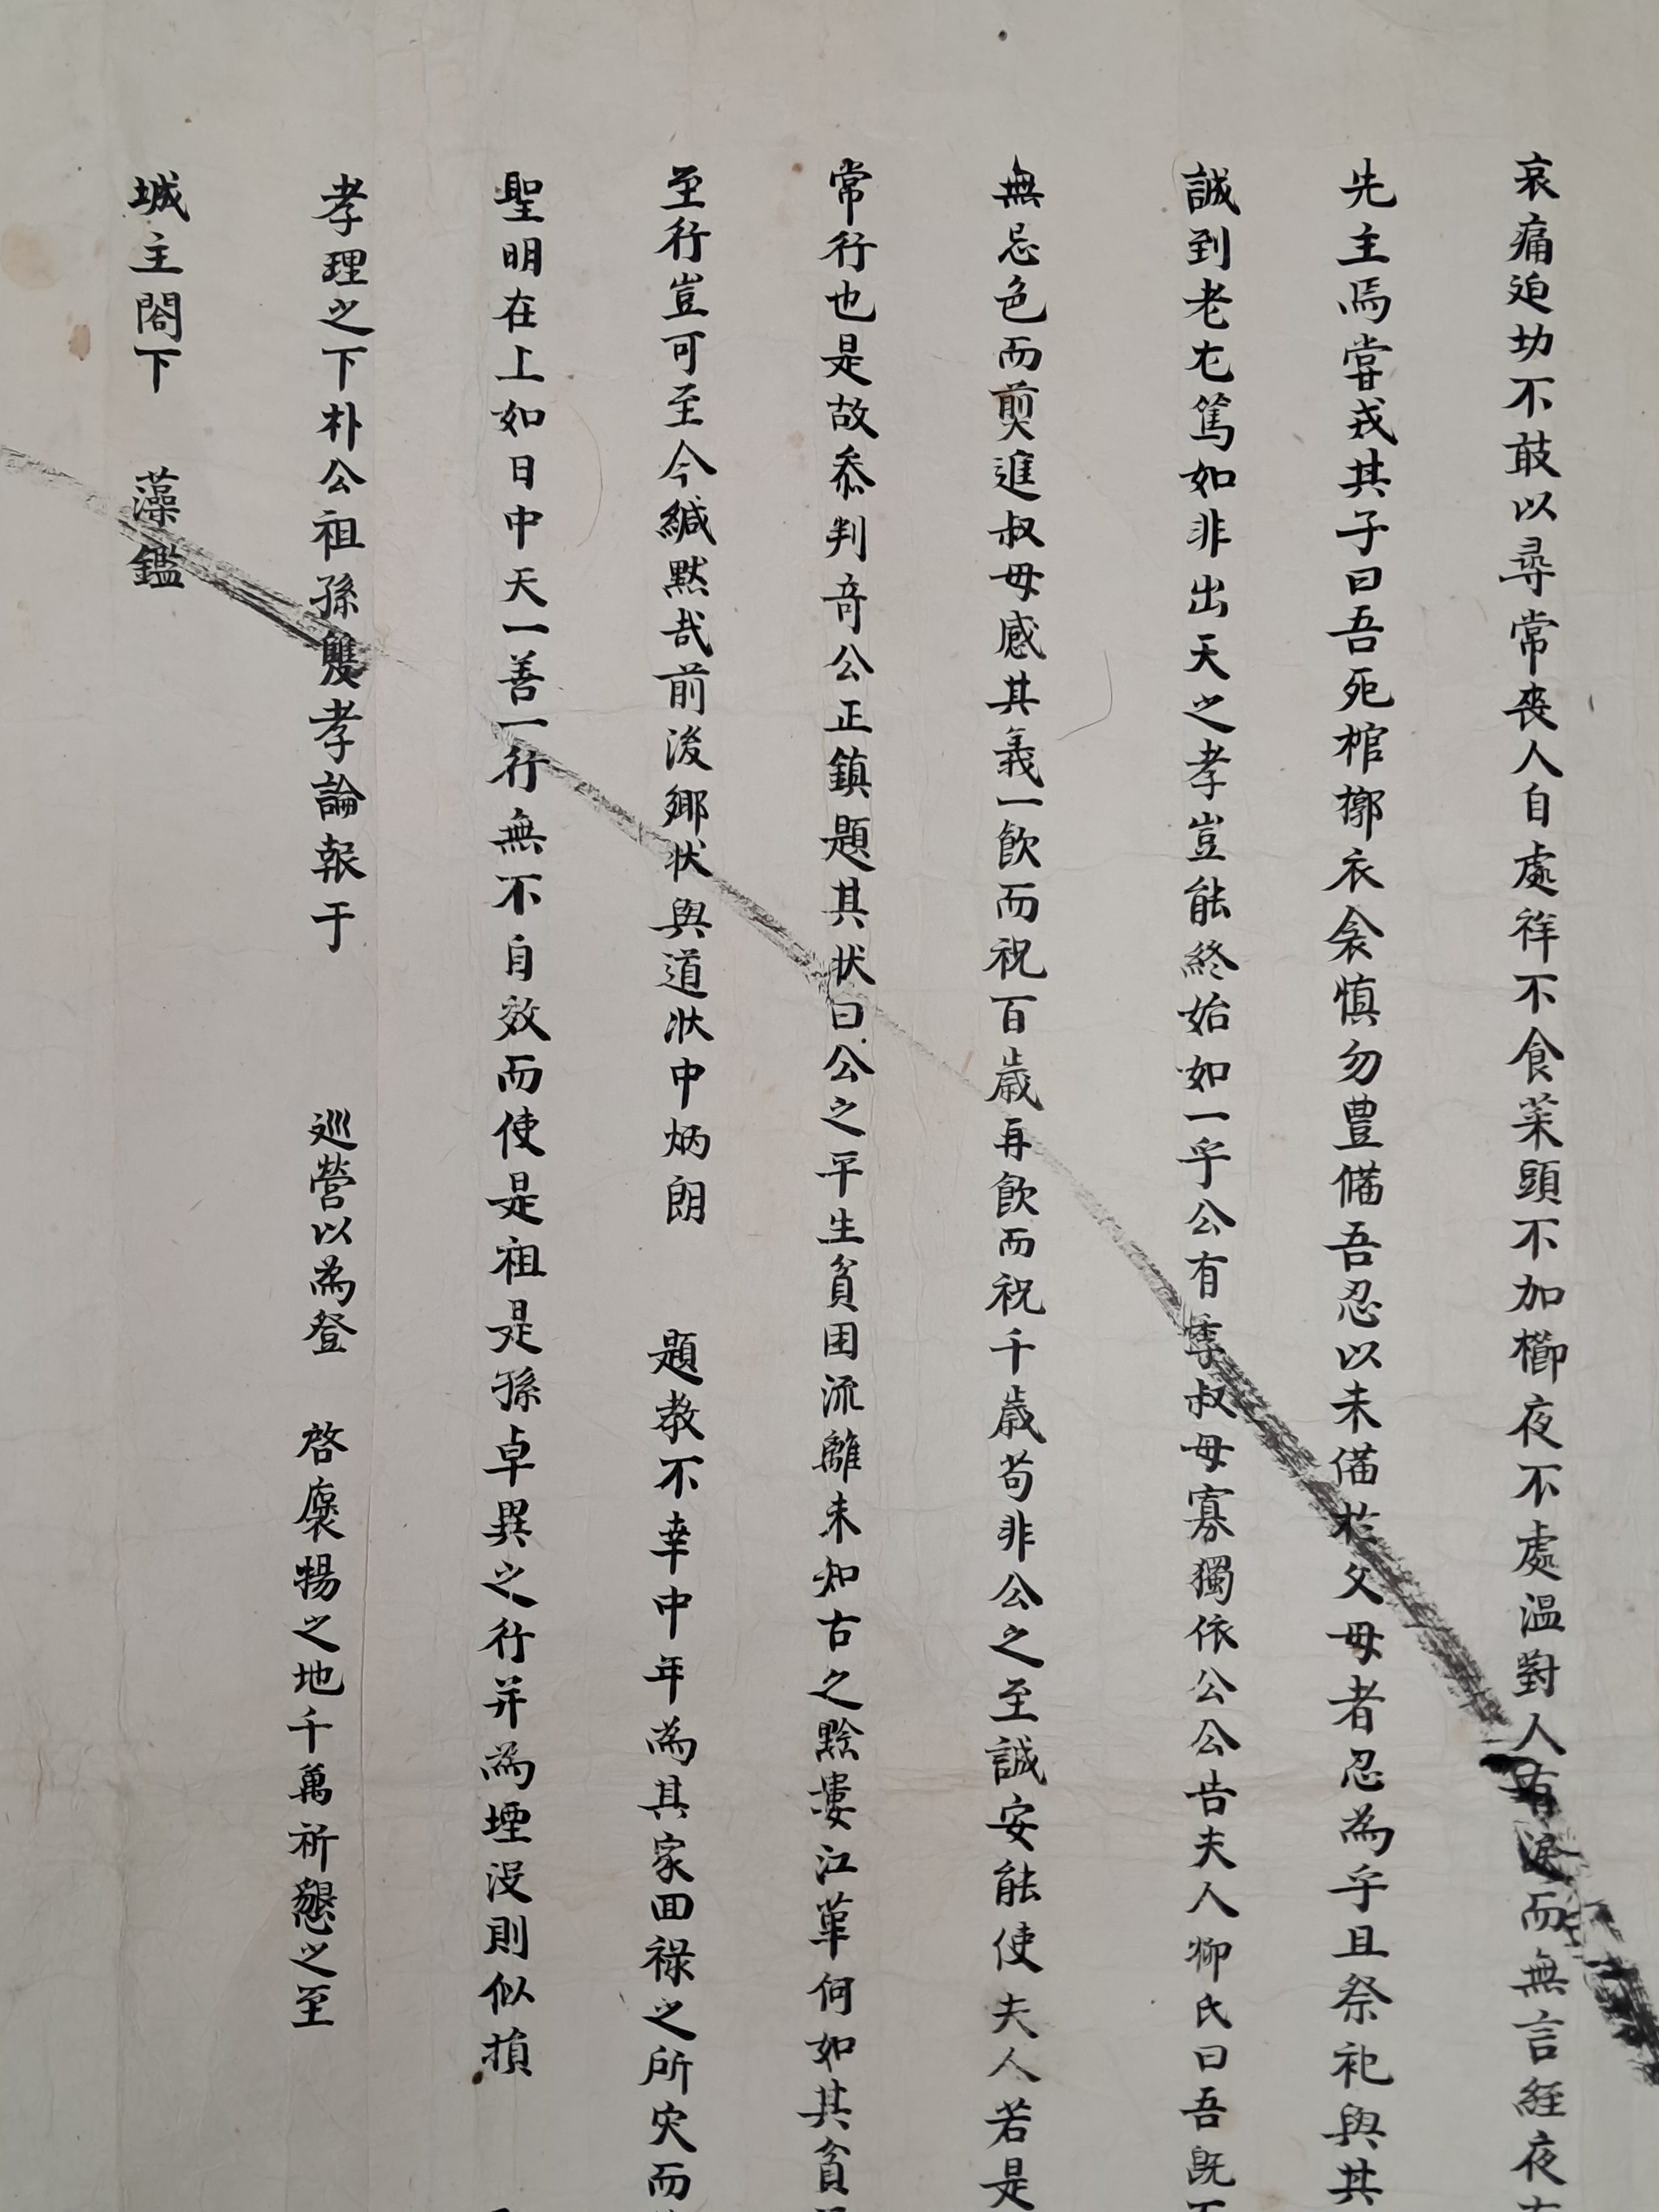 哀痛迫切不敢以尋常喪人自處祥不食菜頭不加櫛夜不處溫對人有淚而無言經夜
先主焉嘗戎其子曰吾死棺槨衣衾慎勿豊備吾忍以未備於父母者忍為乎且祭祀與其
誠到老尤篤如非出天之孝豈能終始如一乎公有季叔母寡獨依公公告夫人柳氏曰吾既
無忌色而剪進叔母感其義一飮而祝百歲再飮而祝千歲苟非公之至誠安能使夫人若是
常行也是故叅判奇公正鎮題其状曰公之平生貧困流離未知古之黔婁江革何如其貧
至行豈可至今緘默哉前後鄉状與道狀中炳朗 題教不幸中年為其家回祿之所灾而
聖明在上如日中天一善一行無不自效而使是祖是孫卓異之行并為堙没則似損
孝理之下朴公祖孫雙孝論報于 巡營以為登 啓褒揚之地千萬祈懇之至
城主閤下 藻鑑